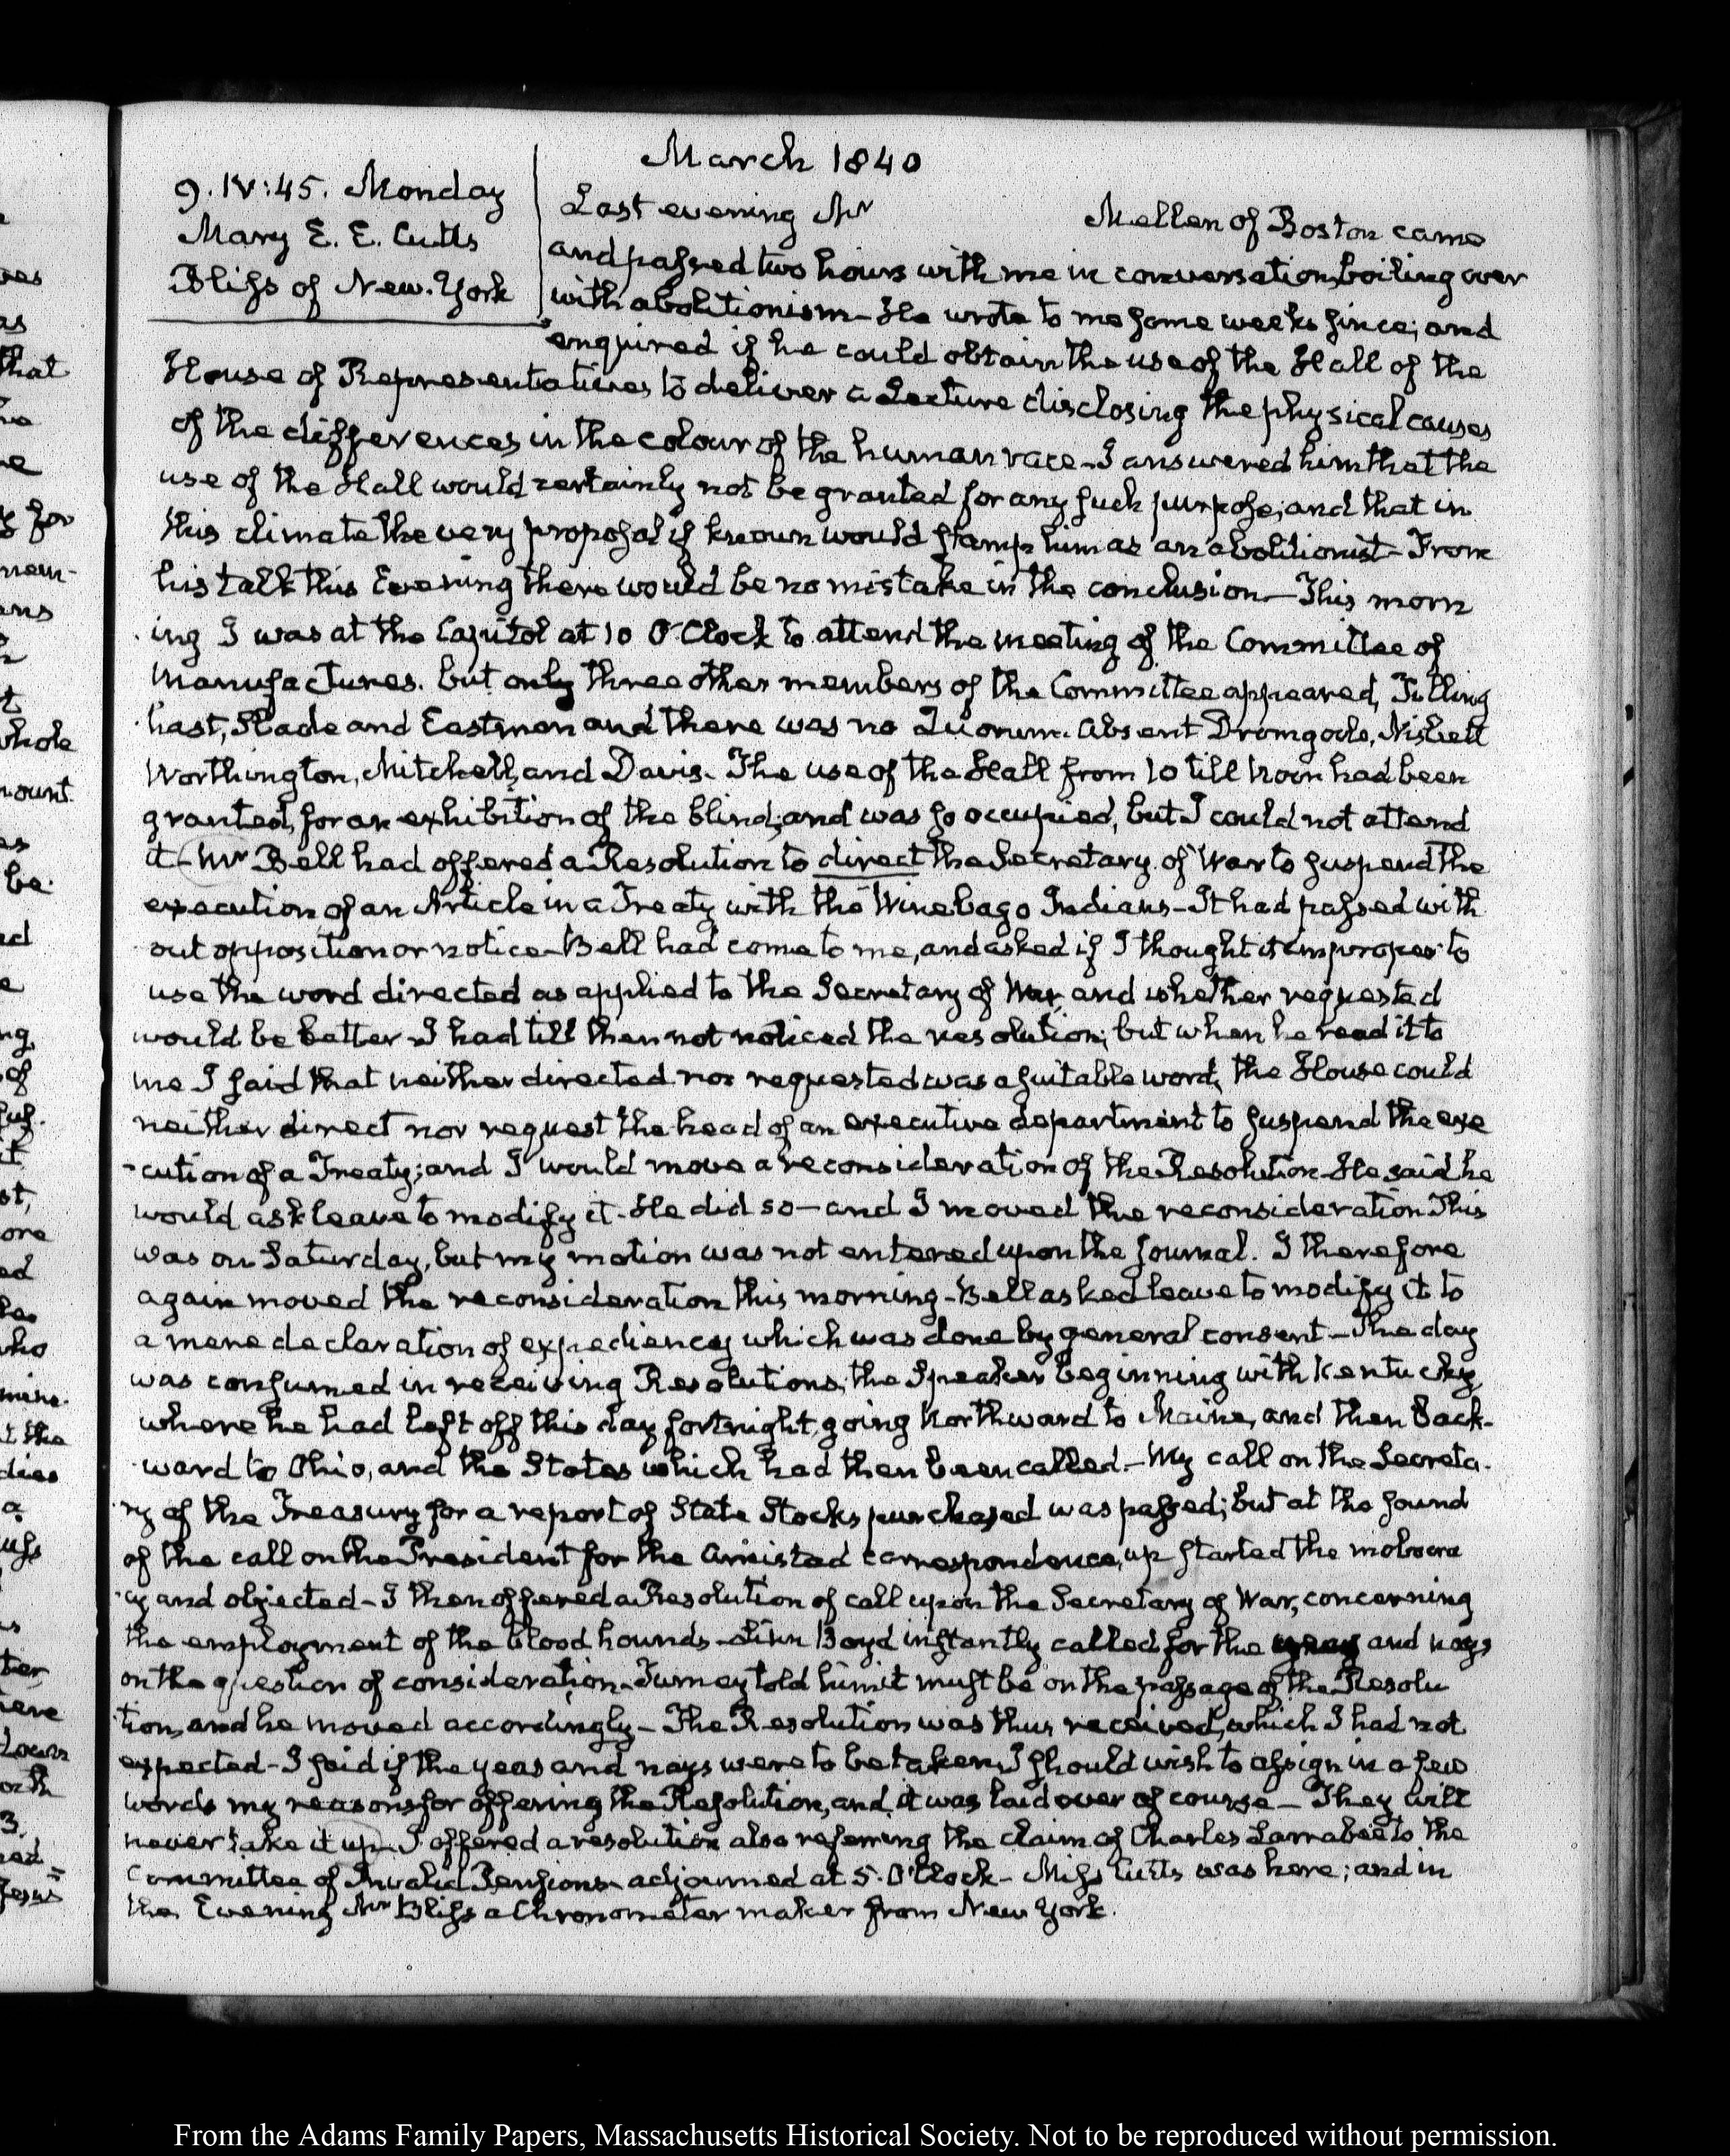 March 1840
9. IV:45. Monday
Mary E. E. Cutts
Bliss of New-York
Last evening Mr Mellen of Boston came
and passed two hours with me in conversation, boiling over
with abolitionism – He wrote to me some weeks since; and
enquired if he could obtain the use of the Hall of the
House of Representatives to deliver a Lecture disclosing the physical causes
of the differences in the colour of the human race – I answered him that the
use of the Hall would certainly not be granted for any such purpose; and that in
this climate the very proposal if known would stamp him as an abolitionist – From
his talk this Evening there would be no mistake in the conclusion – This morn
ing I was at the Capitol at 10 O'Clock to attend the meeting of the Committee of
Manufactures. but only three other members of the Committee appeared, Tilling
hast, Slade and Eastman and there was no Quorum. Absent Dromgoole, Nisbett
Worthington, Mitchell, and Davis. The use of the Hall from 10 till Noon had been
granted, for an exhibition of the blind; and was so occupied, but I could not attend
it – Mr Bell had offered a Resolution to direct the Secretary of War to suspend the
execution of an Article in a Treaty with the Winebago Indians – It had passed with
out opposition or notice – Bell had come to me, and asked if I thought it improper to
use the word directed as applied to the Secretary of War and whether requested
would be better – I had till then not noticed the resolution; but when he read it to
me I said that neither directed nor requested was a suitable word, the House could
neither direct nor request the head of an executive department to suspend the exe
-cution of a Treaty; and I would move a reconsideration of the Resolution – He said he
would ask leave to modify it – He did so – and I moved the reconsideration This
was on Saturday, but my motion was not entered upon the Journal. I therefore
again moved the reconsideration this morning – Bell asked leave to modify it to
a mere declaration of expediency which was done by general consent – The day
was consumed in receiving Resolutions; the Speaker beginning with Kentucky,
where he had left off this day fortnight, going Northward to Maine, and then back-
ward to Ohio, and the States which had then been called. – My call on the Secreta-
ry of the Treasury for a report of State Stocks purchased was passed; but at the sound
of the call on the President for the Amistad correspondence, up started the mobocra
-cy and objected – I then offered a Resolution of call upon the Secretary of War, concerning
the employment of the blood hounds – Linn Boyd instantly called for the and nays
on the question of consideration – Turney told him it must be on the passage of the Resolu
-tion, and he moved accordingly – The Resolution was thus received, which I had not
expected – I said if the yeas and nays were to be taken, I should wish to assign in a few
words my reasons for offering the Resolution, and it was laid over of course – They will
never take it up – I offered a resolution also referring the claim of Charles Larrabee to the
Committee of Invalid Pensions – adjourned at 5. O'Clock – Miss Cutts was here; and in
the Evening Mr Bliss a Chronometer maker from New York.
From the Adams Family Papers, Massachusetts Historical Society. Not to be reproduced without permission.